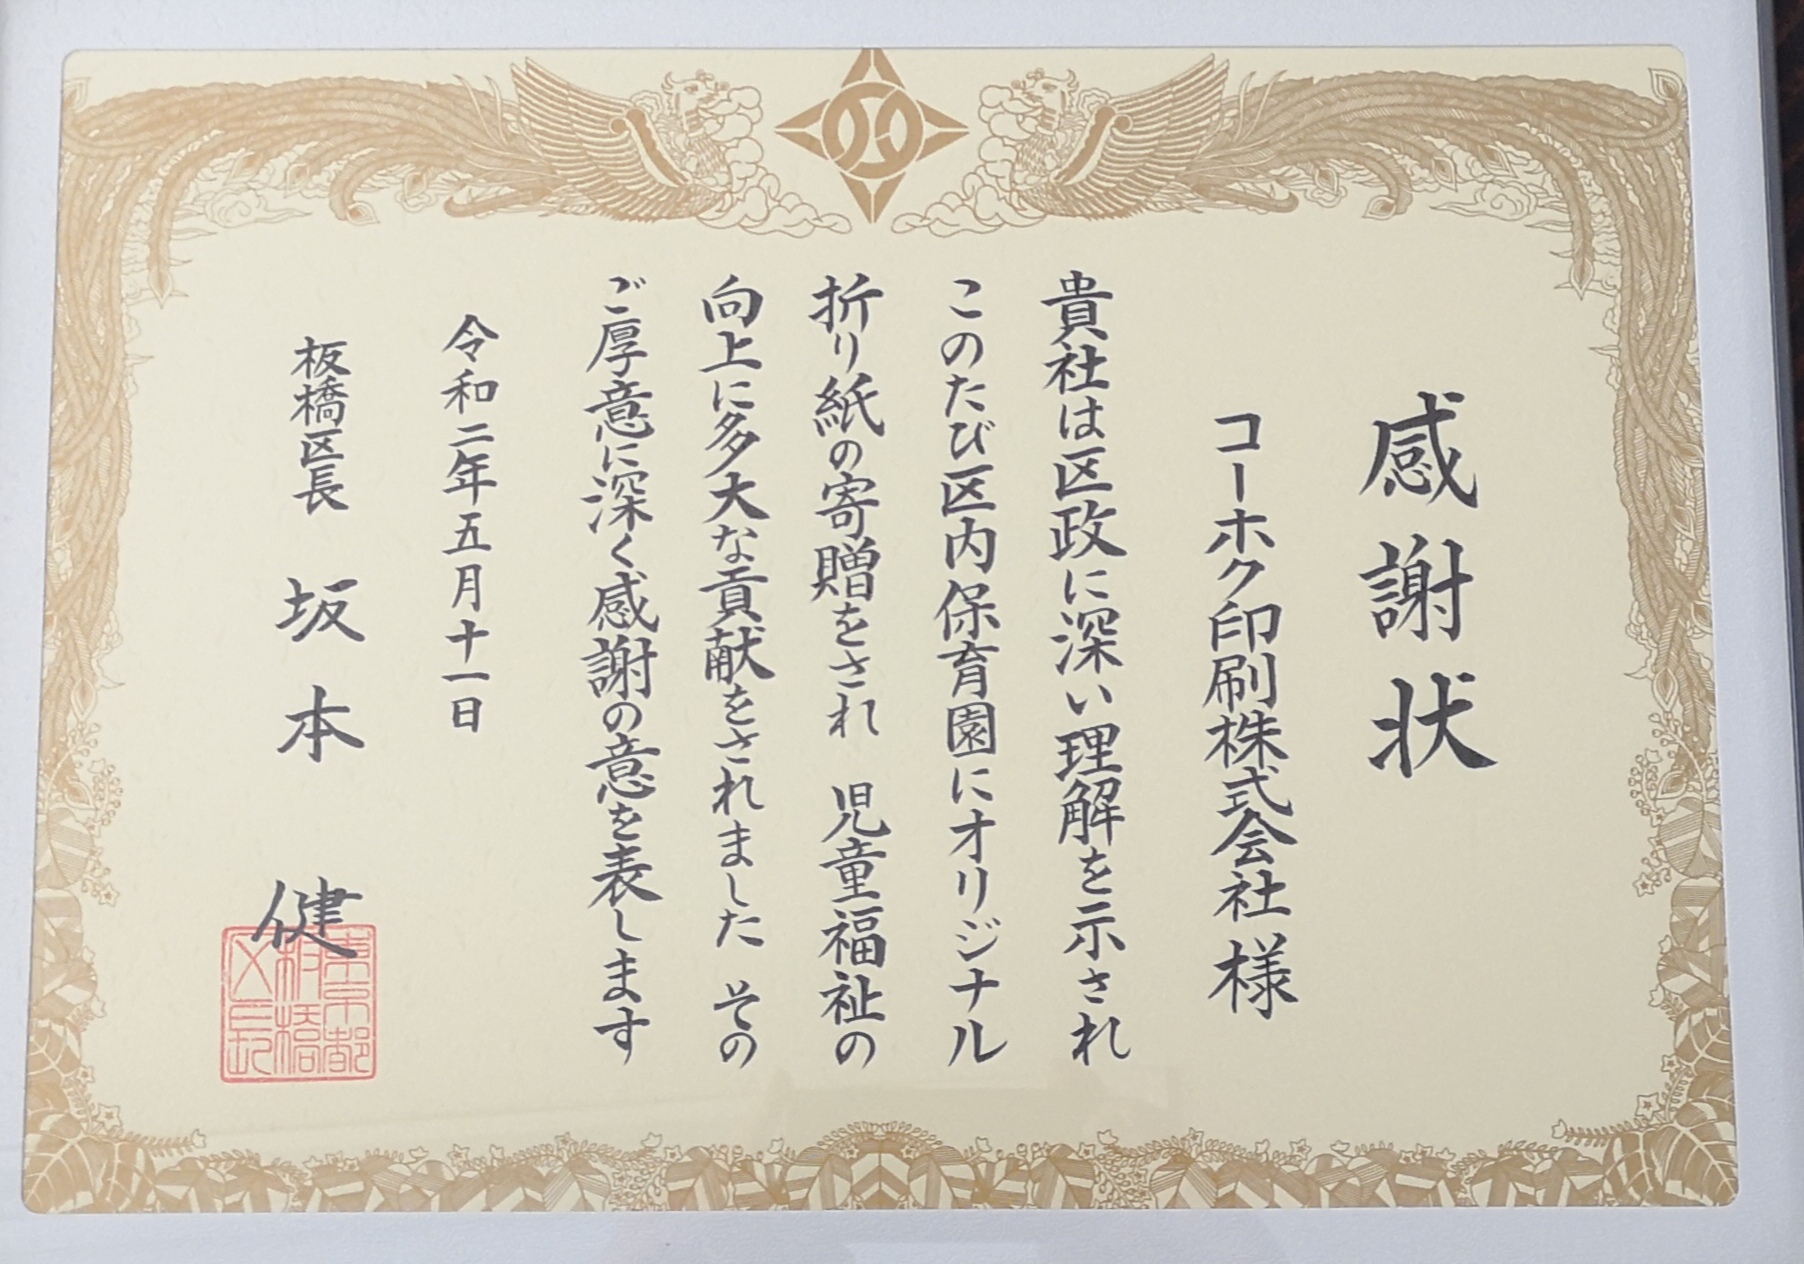 感謝状
コーホク印刷株式会社様
貴社は区政に深い理解を示され
このたび区内保育園にオリジナル
折り紙の寄贈をされ 児童福祉の
向上に多大な貢献をされました その
ご厚意に深く感謝の意を表します
令和二年五月十一日
板橋区長 坂本 健
東京都
板橋
区長